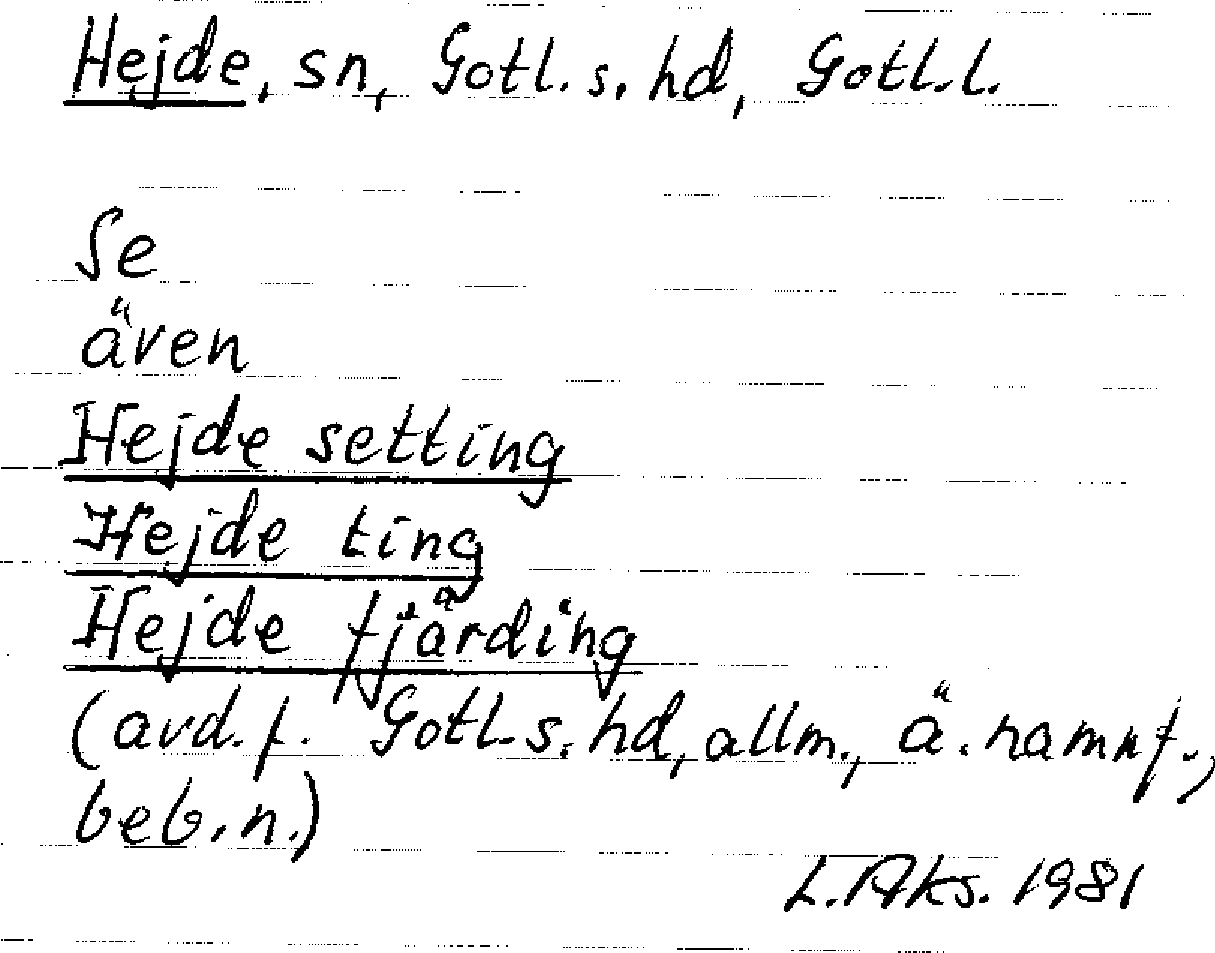 Hejde, sn, Gotl. s. hd, Gotl. l.
Se
även
Hejde setting
Hejde ting
Hejde fjärding
(avd. f. Gotl. s. hd, allm., ä. namnf.,
beb. n.)
L. Aks. 1981